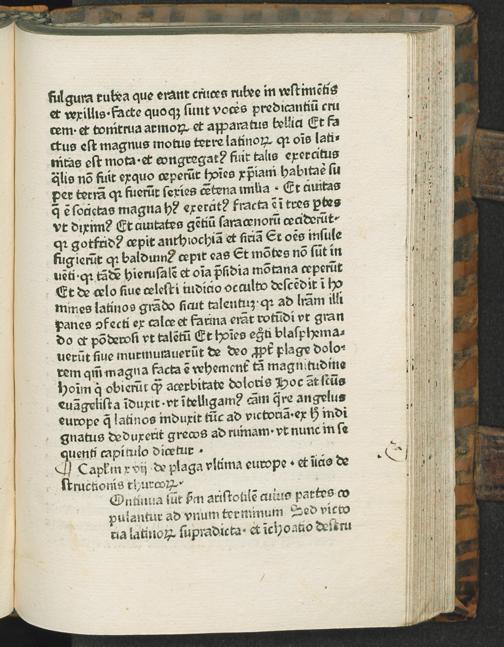 fulgura rubea que erant cruces rubee in vestimētis
et vexillis · Facte quoqꝫ sunt voces predicantiū cru
cem · et tonitrua armoꝝ et apparatus bellici Et fa
ctus est magnus motus terre latinoꝝ qꝛ oīs lati-
nitas est mota · et congregatꝰ fuit talis exercitus
qͣlis nō fuit exquo ceperūt hoīes xp̄iani habitaē su
per terrā qꝛ fuerūt sexies cētena milia · Et ciuitas
q̄ ē societas magna hꝰ exercitꝰ fracta ē ī tres ptes
vt diximꝰ Et ciuitates gētiū saracenorū ceciderūt ·
qꝛ gotfridꝰ cepit anthiochiā et siriā Et oēs insule
fugierūt qꝛ balduinꝰ cepit eas Et mōtes nō sūt in
uēti · qꝛ tādē hierusalē et oīa p̄sidia mōtana ceperūt
Et de celo siue celesti iudicio occulto descēdit ī ho
mines latinos grādo sicut talentuꝫ · qꝛ ad lr̄am illi
panes ꝯfecti ex calce et farina erāt rotūdi vt gran
do et pōderosi vt talētū Et hoīes eḡti blasphema-
uerūt siue murmurauerūt de deo ꝓpt̄ plage dolo-
rem qm̄ magna facta ē vehemenť tā magnitudine
hoīm q̇ obierūt qͣꝫ acerbitate doloris Hoc āt scūs
euāgelista īduxit · vt ītelligamꝰ cām qͣre angelus
europe q̇ latinos induxit tūc ad victoriā · ex ħ indi
gnatus deduxerit grecos ad ruinam · vt nunc in se
quenti capitulo dicetur ·
¶ Caplm̄ xvij · de plaga vltima europe · et īicīs de
structionis thurcoꝝ ·
Ontinua sūt ẜm aristotilē cuius partes co
pulantur ad vnum terminum Sed victo
ria latinoꝝ supradicta · et īchoatio destru